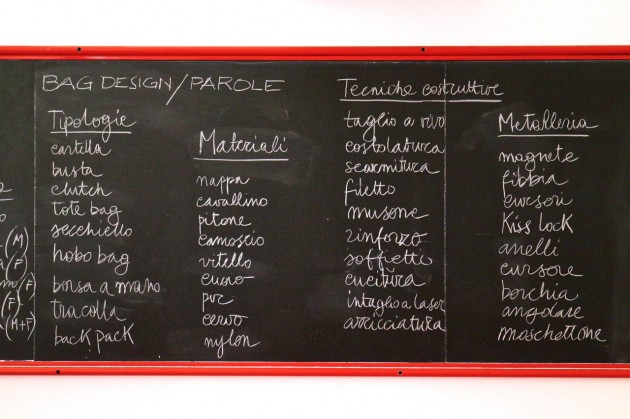 BAG DESIGN/PAROLE
Tipologie
cartella
busta
clutch
tote bag
secchiello
hobo bag
borsa a mano
tracolla
back pack
Materiali
nappa
cavallino
pitone
camoscio
vitello
cuoio
pvc
cervo
nylon
Tecniche costruttive
taglio a vivo
costolatura
scarnitura
filetto
musone
rinforzo
soffietti
cucitura
intaglio a laser
arricciatura
Metalleria
magnete
fibbia
cursori
Kiss lock
anelli
cursore
borchia
angolare
moschettone
(M
(F)
(F)
(F)
(M+F)